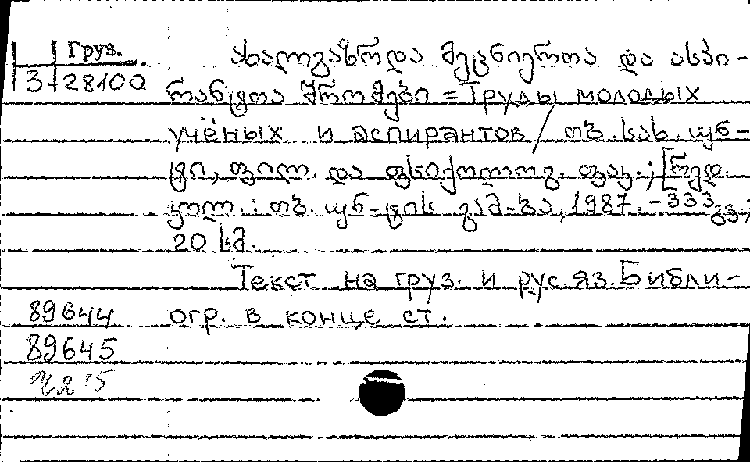 Груз.
3-28100
ახალგაზრდა მეცნიერთა და ასპი-
რანტთა შრომები = Труды молодых
учёных и аспирантов / თბ. სახ. უნ-
ტი, ფილ. და ფსიქოლოგ. ფაკ.; [რედ.
კოლ.: თბ. უნ-ტის გამ-ბა, 1987. - 333 გვ.;
20 სმ.
Текст на груз. и рус яз. Библи-
огр. в конце ст.
89644
89645